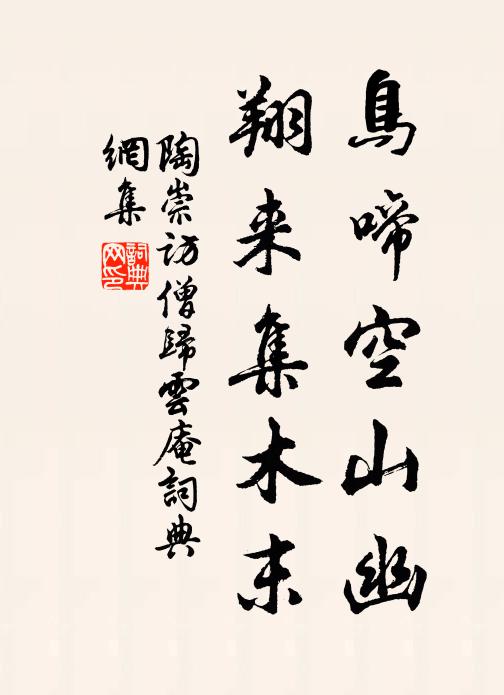 鳥啼空山幽
翔来集木末
陶崇访僧歸雲庵詞典
網集
詞典
网印